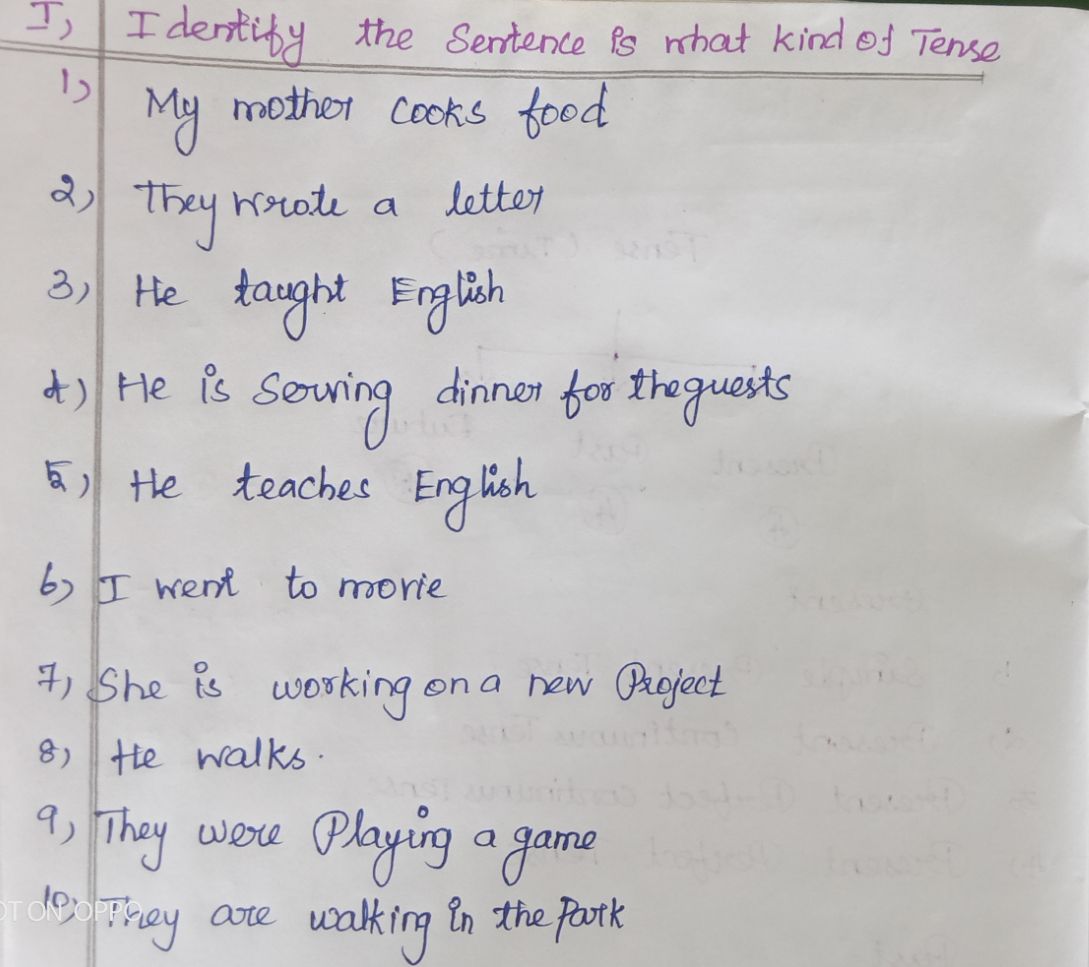 I, Identify the Sentence is what kind of Tense
1) My mother cooks food
2) They wrote a letter
3) He taught English
4) He is Serving dinner for the guests
5) He teaches English
6) I went to movie
7) She is working on a new Project
8) He walks.
9) They were Playing a game
10) They are walking in the Park
OT ON OPPO